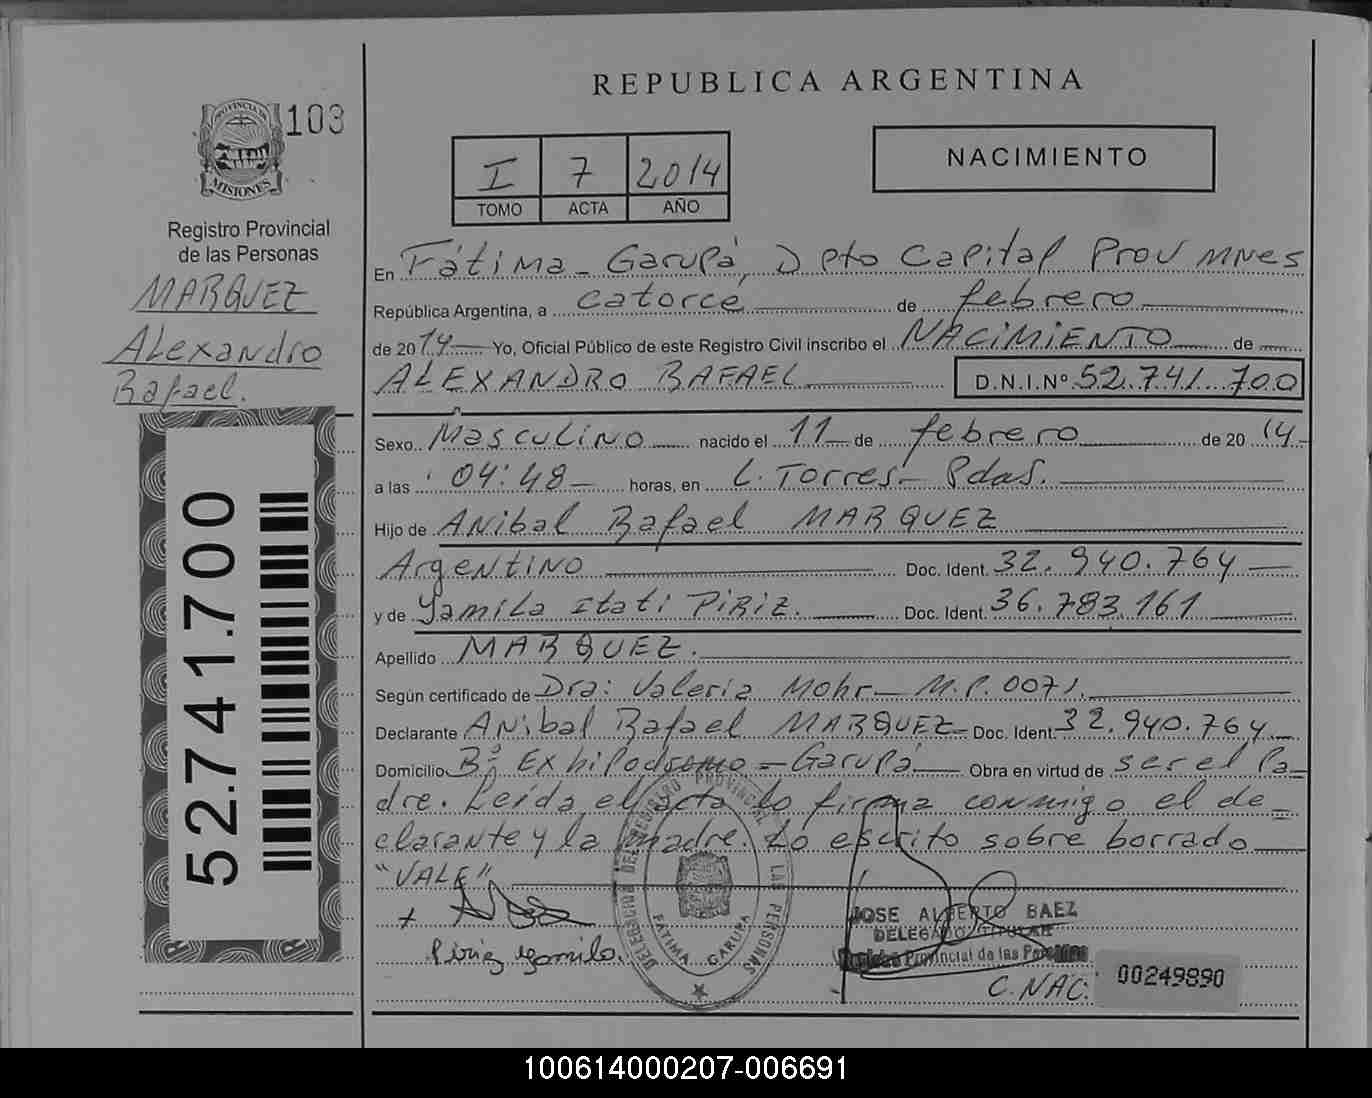 REPUBLICA ARGENTINA
PROVINCIA DE
MISIONES
103
Registro Provincial
de las Personas
MARQUEZ
Alexandro
Rafael.
52.741.700
I 7 2014
TOMO ACTA AÑO
NACIMIENTO
En Fátima - Garupá, Dpto Capital Prov Mnes
República Argentina, a catorce de febrero
de 2014 Yo, Oficial Público de este Registro Civil inscribo el NACIMIENTO de
ALEXANDRO RAFAEL D.N.I.Nº 52.741.700
Sexo Masculino nacido el 11 de febrero de 2014
a las 04:48 horas, en L. Torres - Pdas.
Hijo de Anibal Rafael MARQUEZ
Argentino Doc. Ident. 32.940.764
y de Yamila Itati PIRIZ. Doc. Ident. 36.783.161
Apellido MARQUEZ.
Según certificado de Dra: Valeria Mohr - M.P. 0071.
Declarante Anibal Rafael MARQUEZ - Doc. Ident. 32.940.764
Domicilio Bº Exhipodromo - Garupá Obra en virtud de ser el Pa-
dre. Leída el acta lo firma conmigo el de-
clarante y la madre. Lo escrito sobre borrado
"VALE"
Piriz Yamila.
DELEGACION DEL REGISTRO PROVINCIAL DE LAS PERSONAS
FATIMA GARUPA
JOSE ALBERTO BAEZ
DELEGADO TITULAR
Registro Provincial de las Personas
C. NAC: 00249890
100614000207-006691